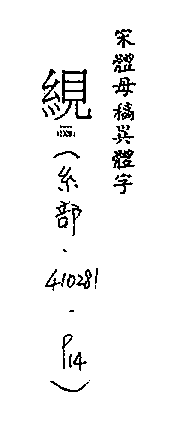 宋體母稿異體字
絸
(糸部.
410281
.
P14)